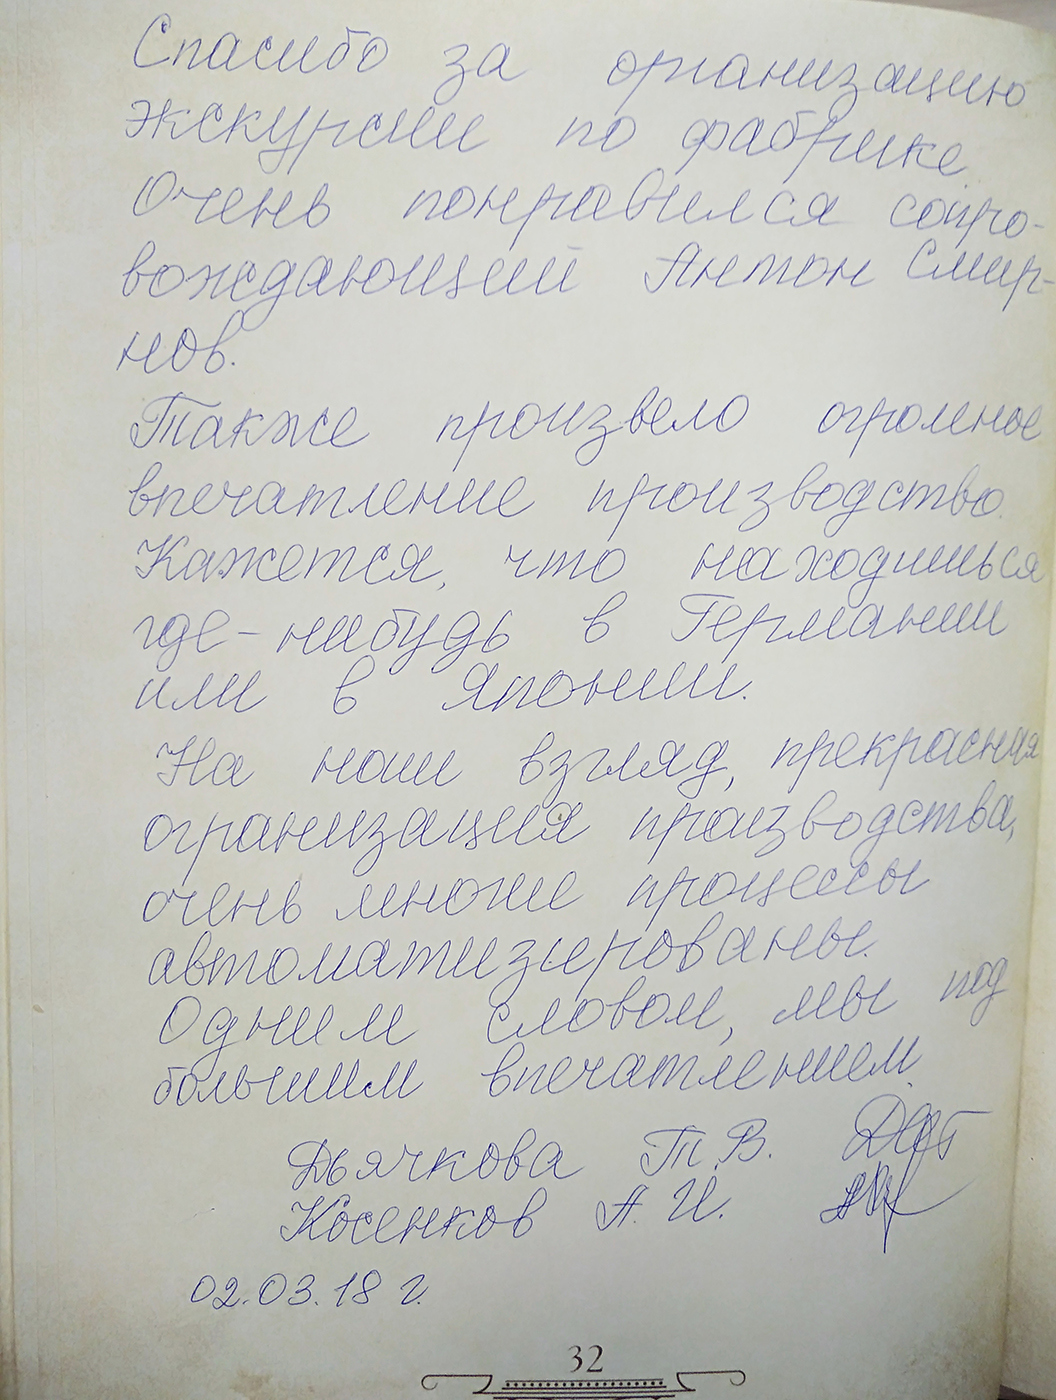 Спасибо за организацию
экскурсии по фабрике.
Очень понравился сопро-
вождающий Антон Смир-
нов.
Также произвело огромное
впечатление производство.
Кажется, что находишься
где-нибудь в Германии
или в Японии.
На наш взгляд, прекрасная
огранизация производства,
очень многие процессы
автоматизированы.
Одним словом, мы под
большим впечатлением.
Дьячкова Т.В.
Косенков А.И.
02.03.18 г.
32